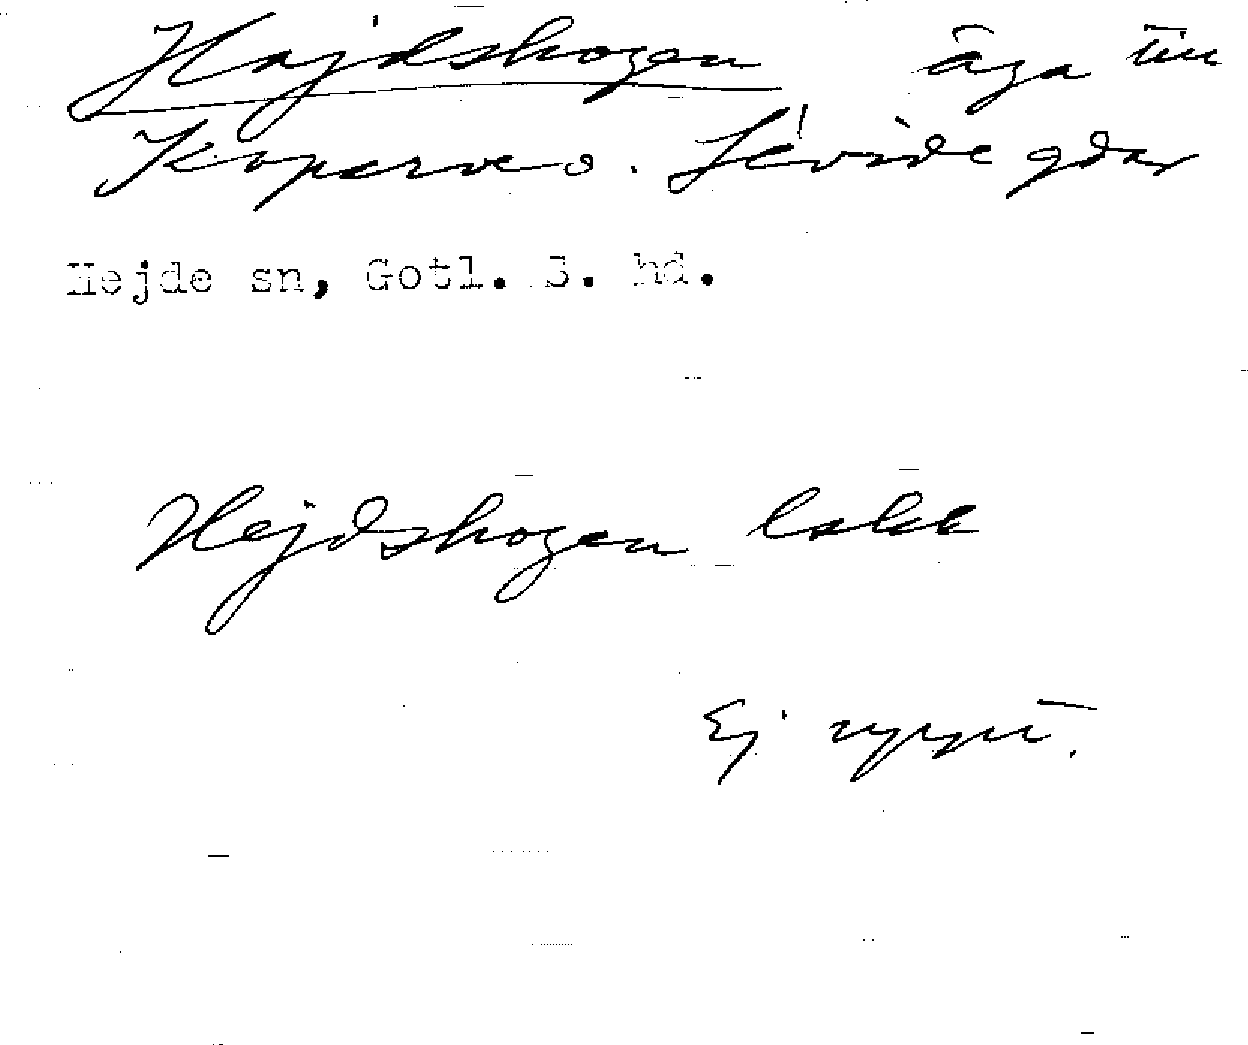 Hajdskogen äga till
Koparve o. Lévide gdar
Hejde sn, Gotl. 3. hd.
Hejdskogen lskk
Ej uppt.